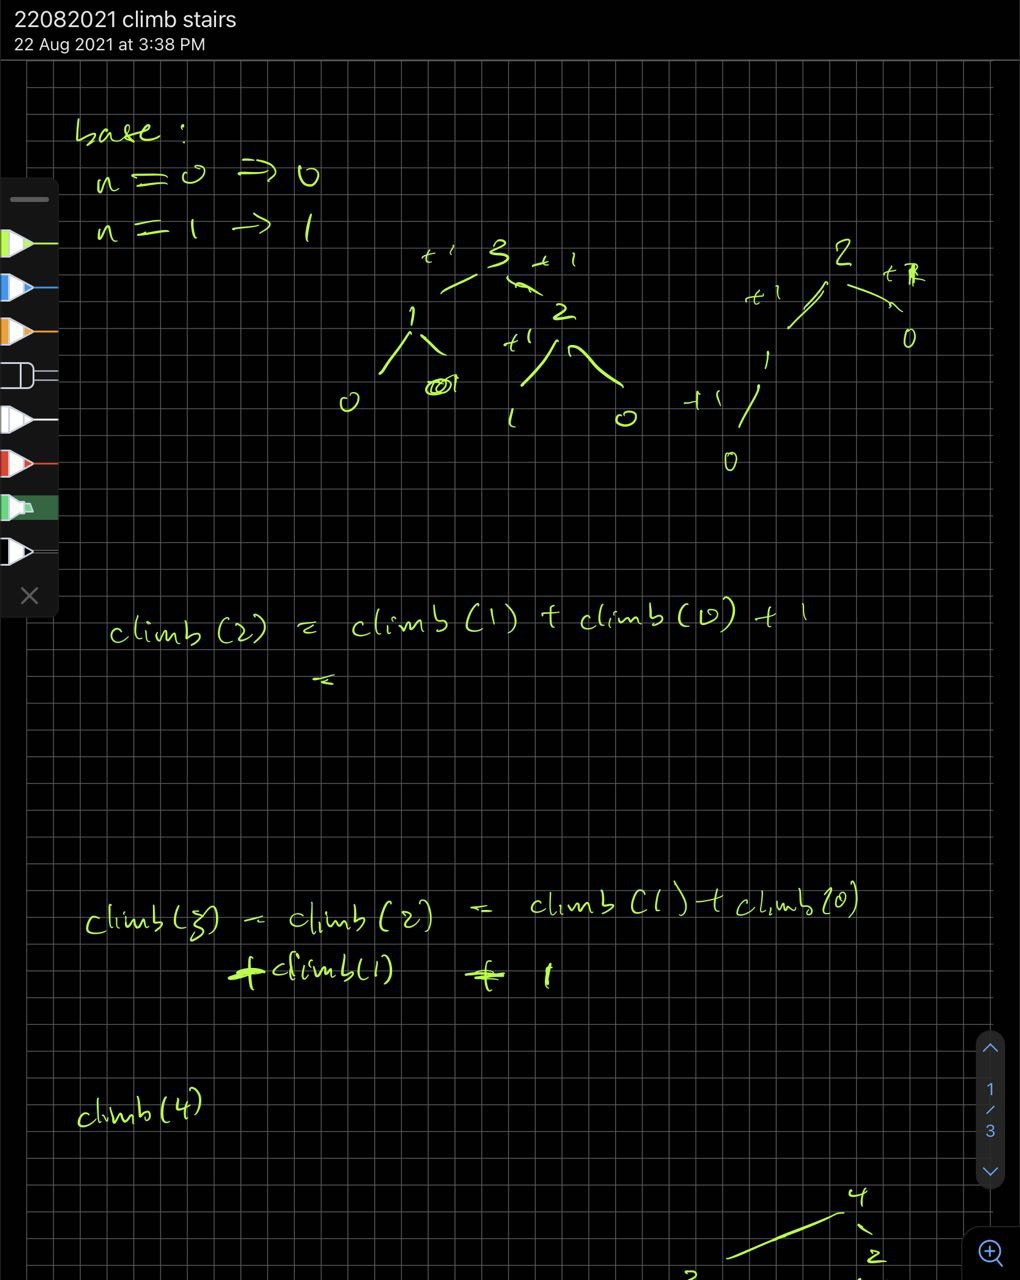 22082021 climb stairs
22 Aug 2021 at 3:38 PM
base :
n = 0 => 0
n = 1 -> 1
+1 3 +1
1 2
+1
0 1 0
2
+1
+1
1 0
+1
0
climb (2) = climb (1) + climb (0) + 1
=
climb(3) = climb (2) = climb (1) + climb (0)
+ climb(1) + 1
climb(4)
4
2
1
/
3